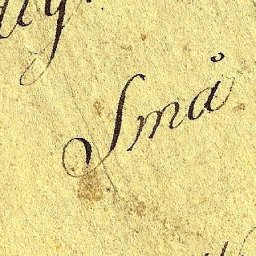 Små